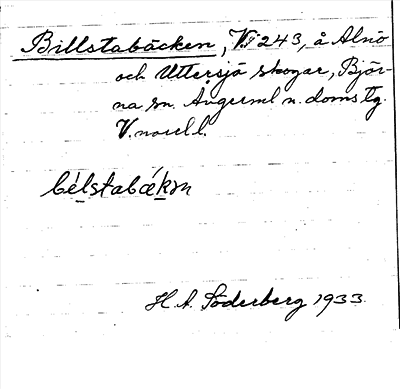 Billstabäcken, VJ 243, å Alnö
och Uttersjö skogar, Björ-
na sn. Ångerml. n. doms tg.
V. norell.
bélstabækṃ
H. A. Söderberg 1933.